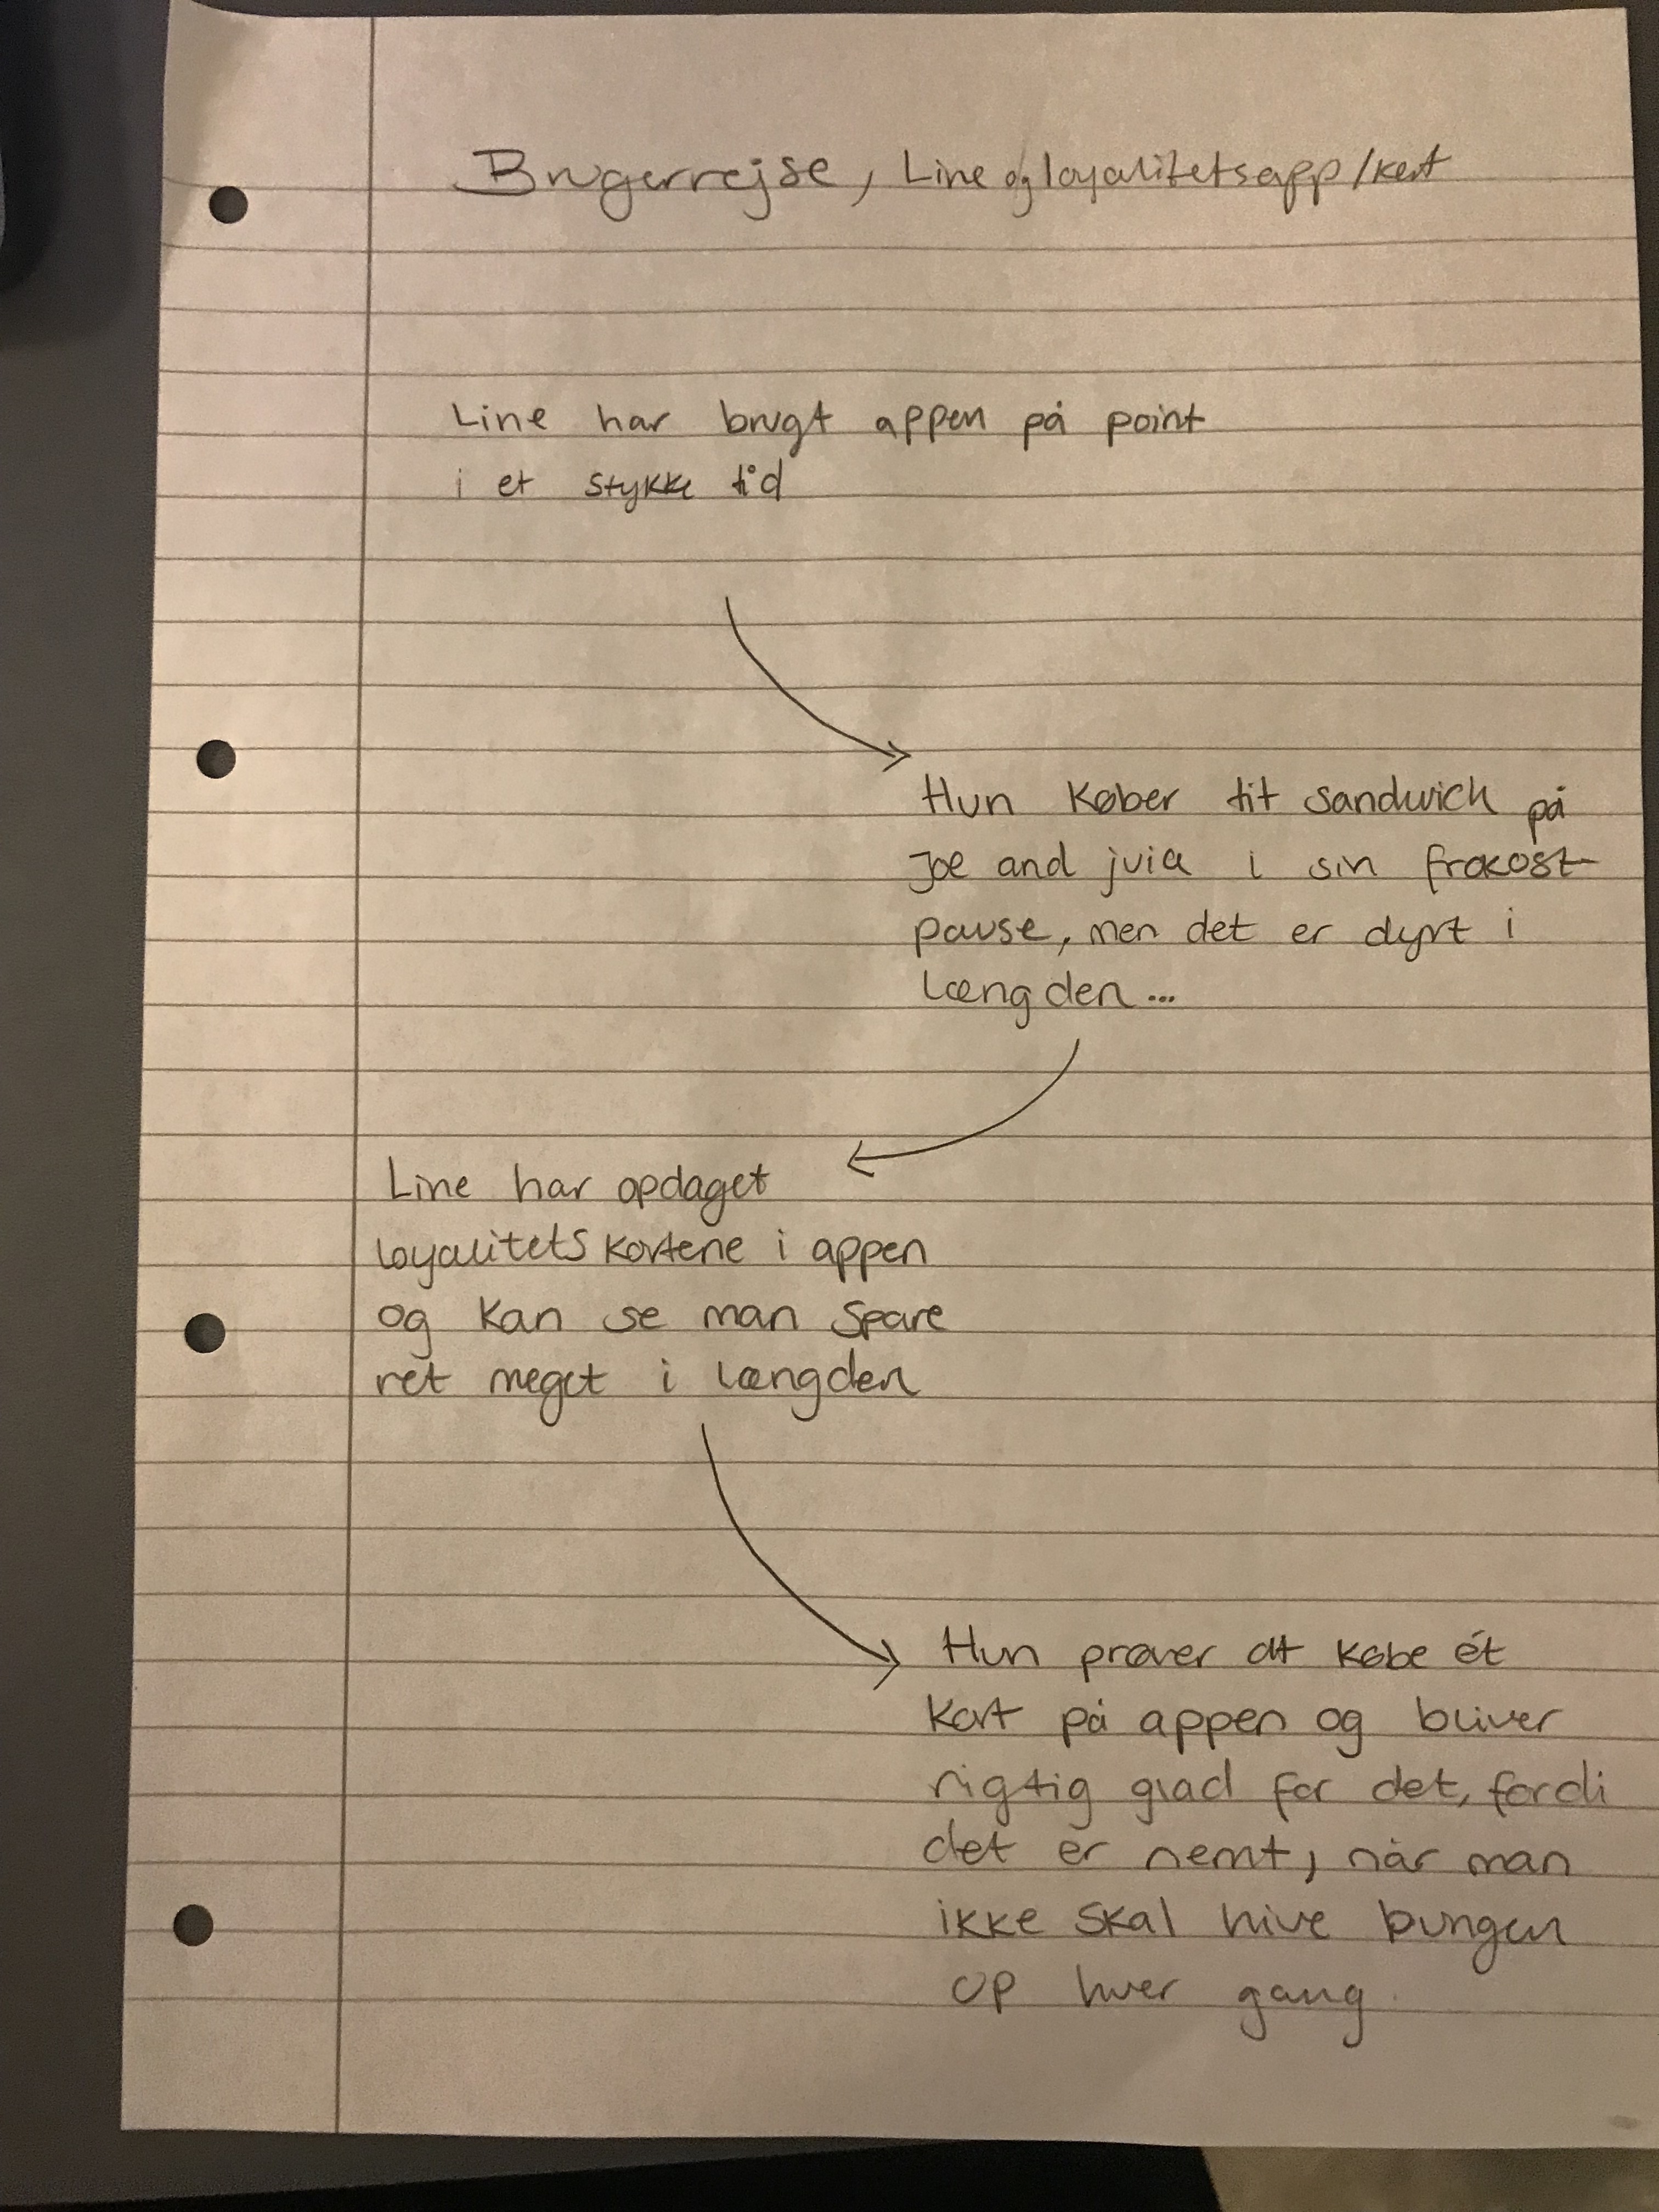 Brugerrejse, Line og loyalitetsapp/kort
Line har brugt appen på point
i et stykke tid
Hun køber tit sandwich på
Joe and juia i sin frokost-
pause, men det er dyrt i
længden...
Line har opdaget
loyalitetskortene i appen
og kan se man spare
ret meget i længden
Hun prøver at købe ét
kort på appen og bliver
rigtig glad for det, fordi
det er nemt, når man
ikke skal hive pungen
op hver gang.